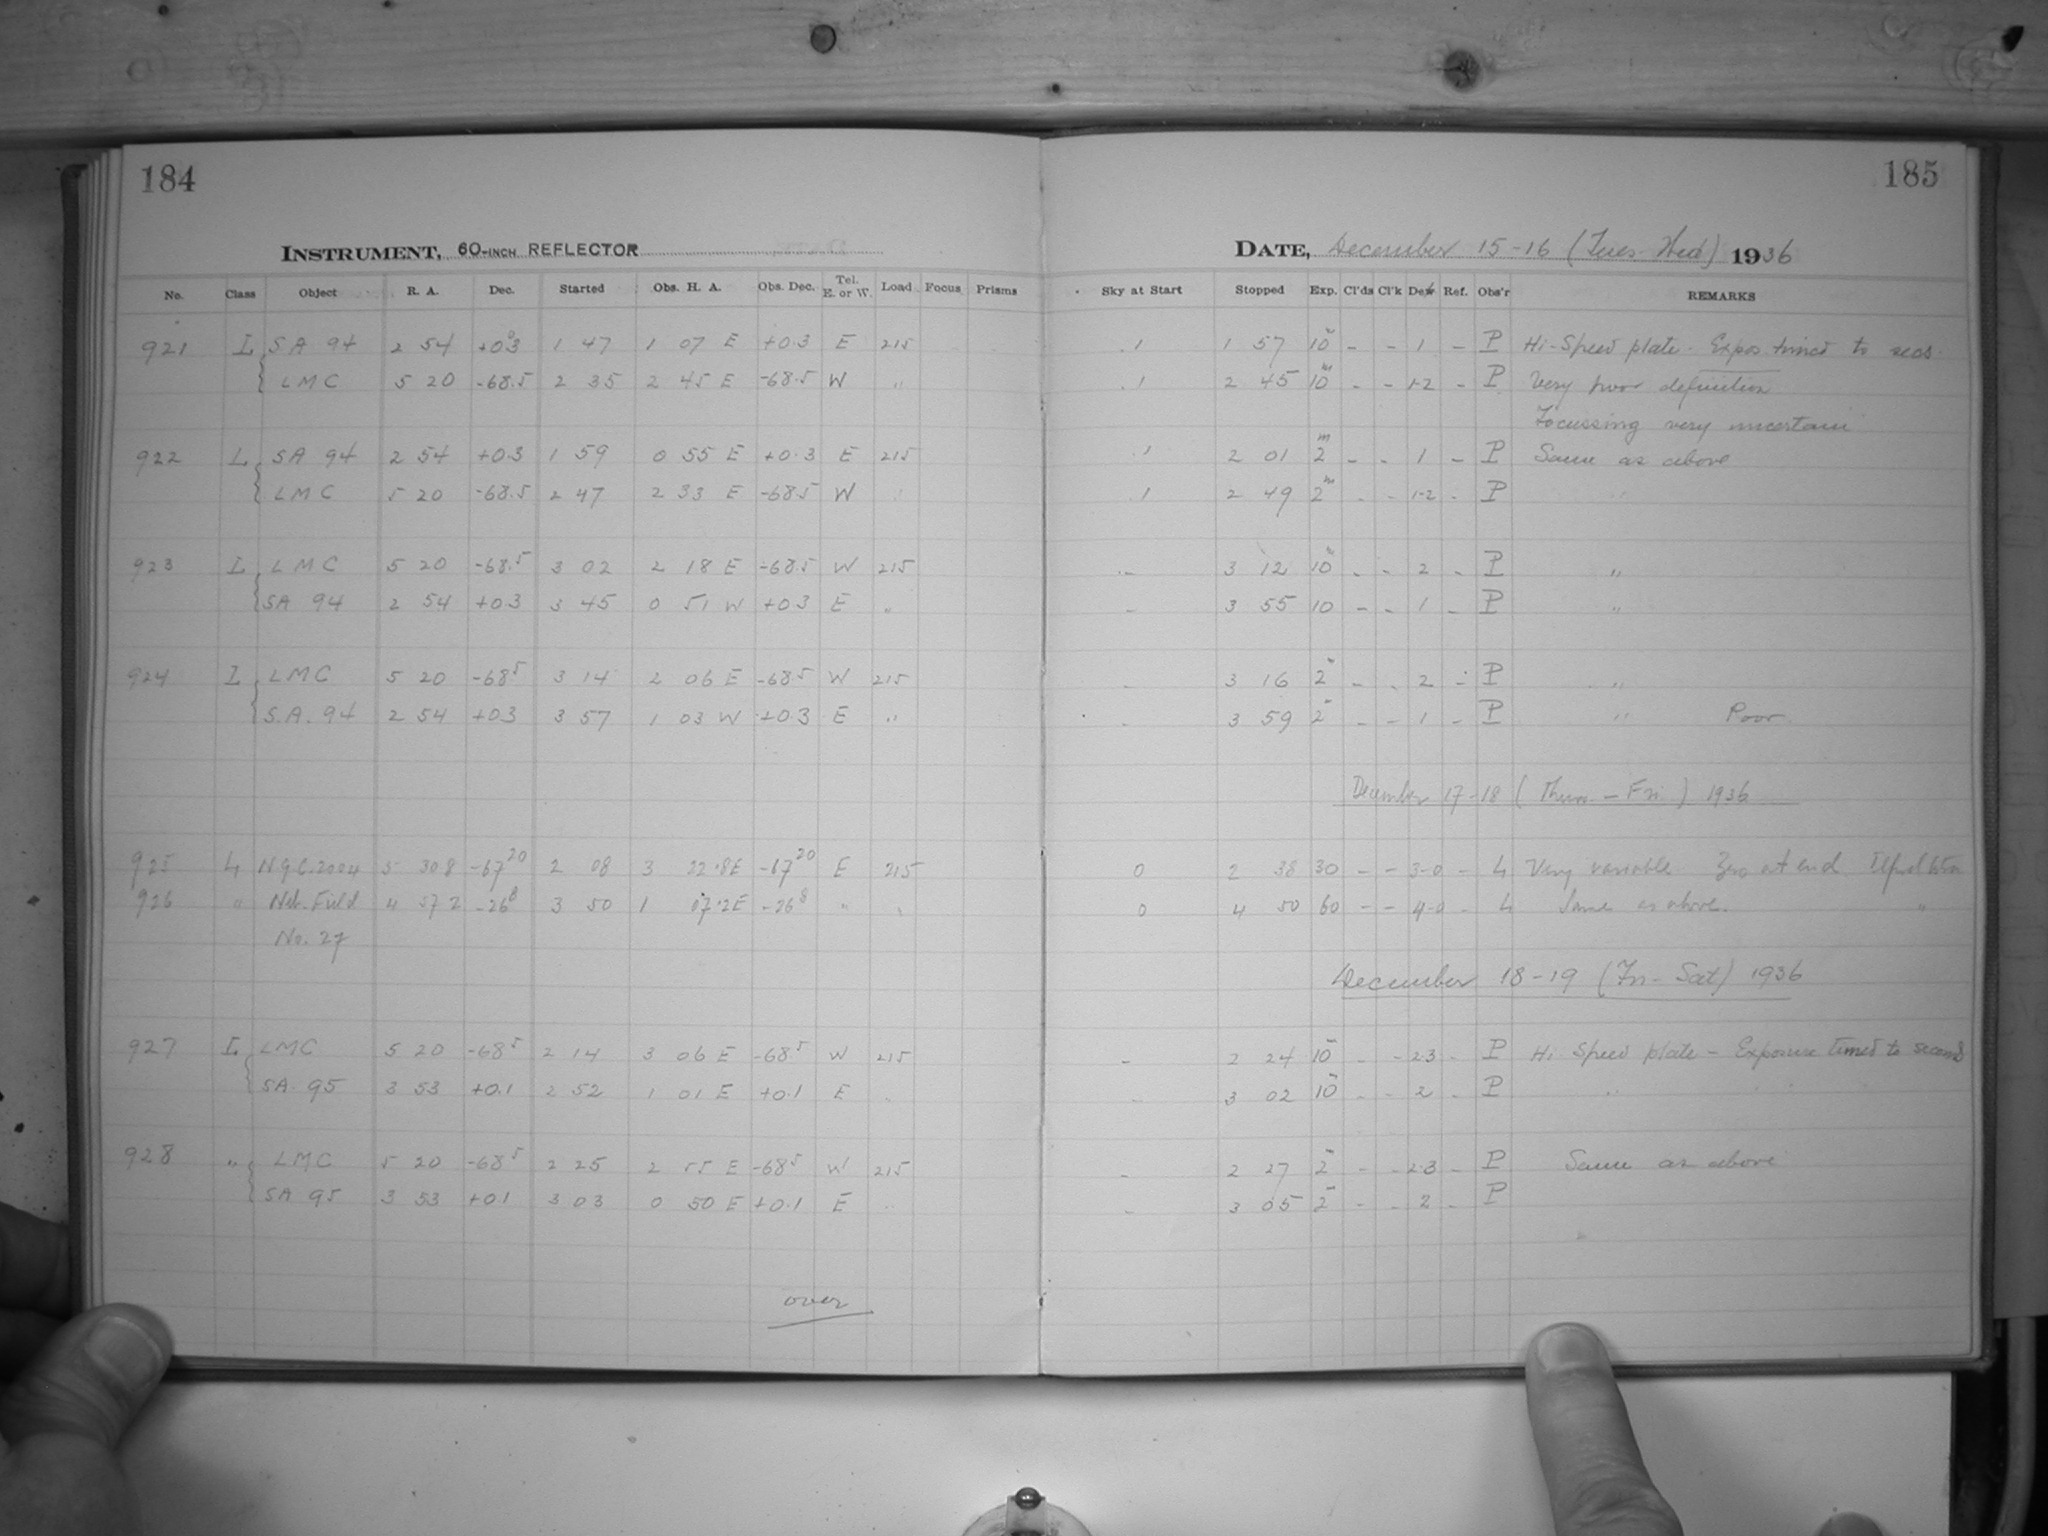 184 185
INSTRUMENT, 60-INCH REFLECTOR DATE, December 15-16 (Tues-Wed) 1936
No. Class Object R. A. Dec. Started Obs. H. A. Obs. Dec. Tel. E. or W. Load Focus Prisms Sky at Start Stopped Exp. Cl'ds Cl'k Dew Ref. Obs'r REMARKS
921 I SA 94 2 54 +0.3 1 47 1 07 E +0.3 E 215 .1 1 57 10m - - 1 - P Hi-Speed plate. Expos timed to secs.
LMC 5 20 -68.5 2 35 2 45 E -68.5 W " .1 2 45 10m - - 1-2 - P Very poor definition
Focussing very uncertain
922 I SA 94 2 54 +0.3 1 59 0 55 E +0.3 E 215 .1 2 01 2m - - 1 - P Same as above
LMC 5 20 -68.5 2 47 2 33 E -68.5 W " .1 2 49 2m - - 1-2 - P "
923 I LMC 5 20 -68.5 3 02 2 18 E -68.5 W 215 - 3 12 10m - - 2 - P "
SA 94 2 54 +0.3 3 45 0 51 W +0.3 E " - 3 55 10 - - 1 - P "
924 I LMC 5 20 -68.5 3 14 2 06 E -68.5 W 215 - 3 16 2m - - 2 - P "
S.A. 94 2 54 +0.3 3 57 1 03 W +0.3 E " - 3 59 2m - - 1 - P " Poor
December 17-18 (Thurs. - Fri) 1936
925 L N.G.C. 2004 5 30.8 -67 20 2 08 3 22.8E -67 20 E 215 0 2 38 30 - - 3-0 - L Very variable Zero at end
926 " Neb. Field 4 57.2 -26 8 3 50 1 07.2E -26 8 " " 0 4 50 60 - - 4-0 - L Same as above. "
No. 27
December 18-19 (Fri-Sat) 1936
927 I LMC 5 20 -68.5 2 14 3 06 E -68.5 W 215 - 2 24 10m - - 2-3 - P Hi Speed plate - Exposure timed to second
SA 95 3 53 +0.1 2 52 1 01 E +0.1 E " - 3 02 10m - - 2 - P " "
928 " LMC 5 20 -68.5 2 25 2 55 E -68.5 W 215 - 2 27 2m - - 2-3 - P Same as above
SA 95 3 53 +0.1 3 03 0 50 E +0.1 E " - 3 05 2m - - 2 - P
over